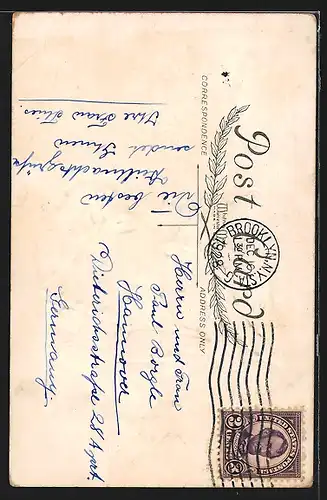 Post Card
CORRESPONDENCE
ADDRESS ONLY
BROOKLYN, N.Y.
DEC
1928
Die besten
Weihnachtsgrüße
sendet Ihnen
Ihre Frau
Herrn und Frau
Paul Borgle
Hannover
Dieterichsstraße 28 A ptr.
Germany
3 3